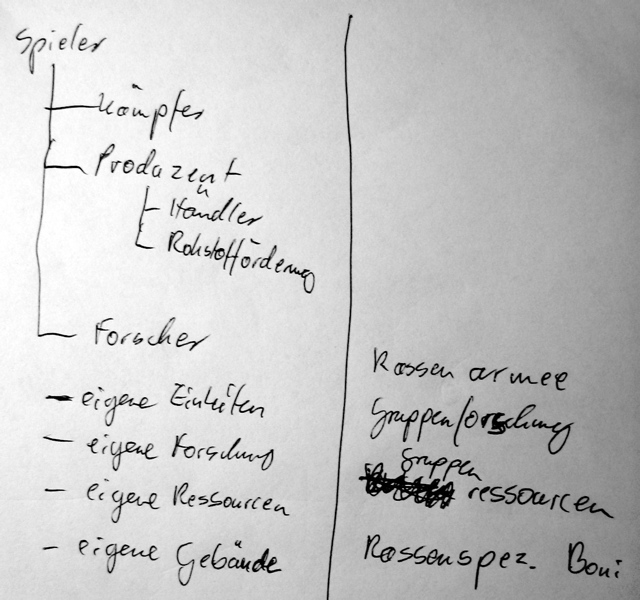 Spieler
Kämpfer
Produzent
Händler
Rohstofförderung
Forscher
- eigene Einheiten
- eigene Forschung
- eigene Ressourcen
- eigene Gebäude
Rassenarmee
Gruppenforschung
Gruppen
ressourcen
Rassenspez. Boni